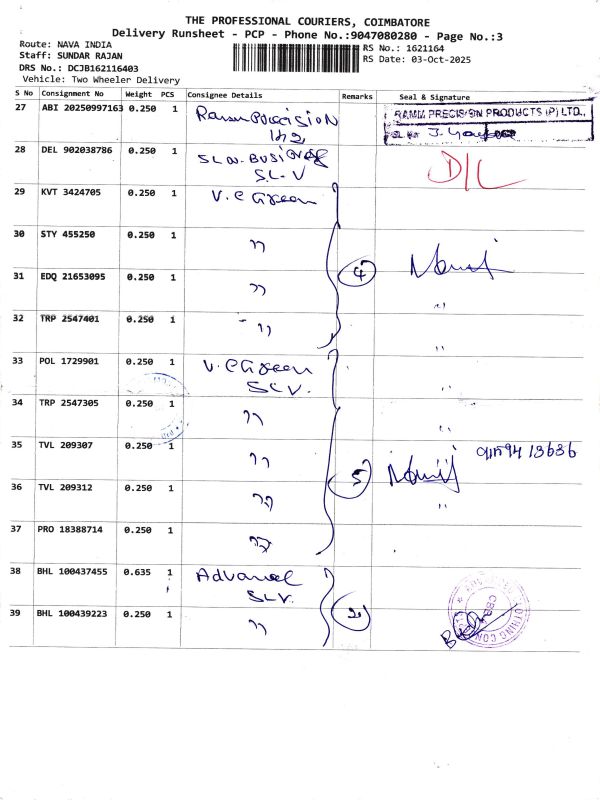 THE PROFESSIONAL COURIERS, COIMBATORE
Delivery Runsheet - PCP - Phone No.:9047080280 - Page No.:3
Route: NAVA INDIA
Staff: SUNDAR RAJAN
DRS No.: DCJB162116403
Vehicle: Two Wheeler Delivery
RS No.: 1621164
RS Date: 03-Oct-2025
S No Consignment No Weight PCS Consignee Details Remarks Seal & Signature
27 ABI 20250997163 0.250 1 Ramm Precision
RAMM PRECISION PRODUCTS (P) LTD.,
28 DEL 902038786 0.250 1
SL-V D/L
29 KVT 3424705 0.250 1 V.C Green
30 STY 455250 0.250 1 "
31 EDQ 21653095 0.250 1 " 4
32 TRP 2547401 0.250 1 " "
33 POL 1729901 0.250 1 V.C Green "
SLV.
34 TRP 2547305 0.250 1 " "
35 TVL 209307 0.250 1 " 5
36 TVL 209312 0.250 1 " "
37 PRO 18388714 0.250 1 "
38 BHL 100437455 0.635 1
SLV.
39 BHL 100439223 0.250 1 " 2